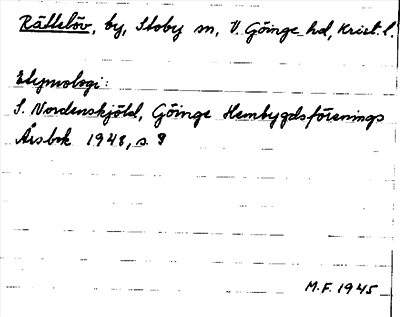 Rättelöv, by, Stoby sn, V. Göinge hd, Krist. l.
Etymologi:
S. Nordenskjöld, Göinge Hembygdsförenings
Årsbok 1948, s. 9
M.F. 1945